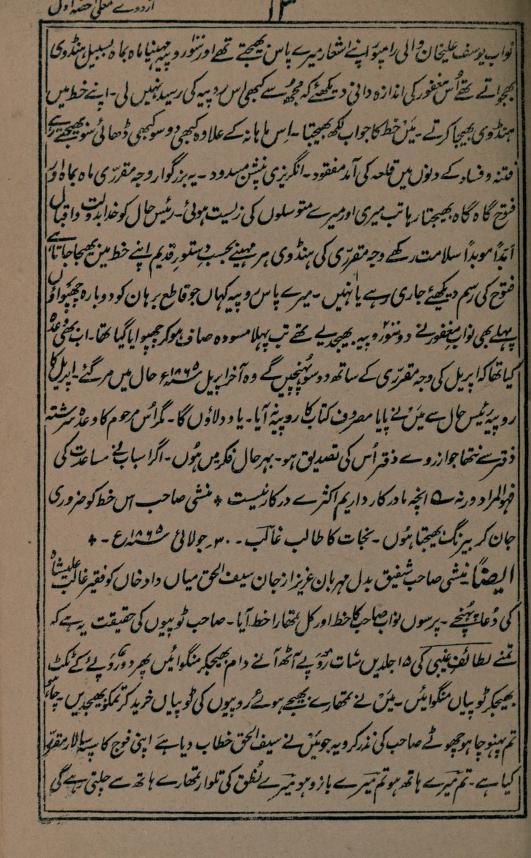 ۱۳ اردوے معلی حصۂ اول
نواب یوسف علیخان والی رامپور اپنے اشعار میرے پاس بھیجتے تھے اور سَو روپیہ مہینا ماہ بماہ بسبیل ہنڈوی
بھجواتے تھے اُس مغفور کی اندازہ دانی دیکھئے کہ مجھ سے کبھی اس روپیہ کی رسید نہیں لی۔ اپنے خط میں
ہنڈوی بھیجا کرتے۔ میں خط کا جواب لکھ بھیجتا۔ اس ماہانہ کے علاوہ کبھی دو سو کبھی ڈھائی سو بھیجتے رہے
فتنہ و فساد کے دنوں میں قلعہ کی آمد مفقود۔ انگریزی پنشن مسدود۔ یہ بزرگوار وجہ مقرری ماہ بماہ اور
فتوح گاہ گاہ بھیجتا رہا تب میری اور میرے متوسلوں کی زیست ہوئی۔ رئیس حال کو خدا بدولت و اقبال
ابداً موبداً سلامت رکھے وجہ مقرری کی ہنڈوی ہر مہینے بحسب دستور قدیم اپنے خط میں بھیجا جاتا ہے
فتوح کی رسم دیکھئے جاری رہے یا نہیں۔ میرے پاس روپیہ کہاں جو قاطع برہان کو دوبارہ چھپواؤں
پہلے بھی نواب مغفور نے دو سَو روپیہ بھیجدیے تھے تب پہلا مسودہ صاف ہو کر چھپوایا گیا تھا۔ اب بھی وعدہ
کیا تھا کہ اپریل کی وجہ مقرری کے ساتھ دو سو پہنچیں گے وہ آخر اپریل سنہ ۱۸۶۵ء حال میں مر گئے۔ اپریل کا
روپیہ رئیس حال سے میں نے پایا مصرف کتاب کا روپیہ نہ آیا۔ یاد دلاؤں گا۔ مگر اُس مرحوم کا وعدہ سررشتہ
دفتر سے نتھا جو از روے دفتر اُس کی تصدیق ہو۔ بہرحال فکر میں ہوں۔ اگر اسباب نے مساعدت کی
فہو المراد ورنہ ؎ انچہ ما در کار داریم اکثرے درکار نیست ٭ منشی صاحب اس خط کو ضروری
جان کر بیرنگ بھیجتا ہوں۔ نجات کا طالب غالب۔ ۳۰۔ جولائی سنہ ۱۸۶۵ع۔ ٭
ایضاً منشی صاحب شفیق بدل مہربان عزیز از جان سیف الحق میاں داد خاں کو فقیر غالب علیشاہ
کی دُعا پہنچے۔ پرسوں نواب صاحب کا خط اور کل تمھارا خط آیا۔ صاحب ٹوپیوں کی حقیقت یہ ہے کہ
تمنے لطائف غیبی کی ۱۵ جلدیں سات روپے آٹھ آنے دام بھیجکر منگوائیں پھر دو روپے کے ٹکٹ
بھیجکر ٹوپیاں منگوائیں۔ میں نے تمھارے بھیجے ہوئے روپیوں کی ٹوپیاں خرید کر تمکو بھیجدیں۔ چاہو
تم پہنو چاہو چھوٹے صاحب کی نذر کرو یہ جو میں نے سیف الحق خطاب دیا ہے اپنی فوج کا سپہ سالار مقرر
کیا ہے۔ تم میرے ہاتھ ہو تم میرے بازو ہو میرے نُطق کی تلوار تمھارے ہاتھ سے چلتی رہے گی